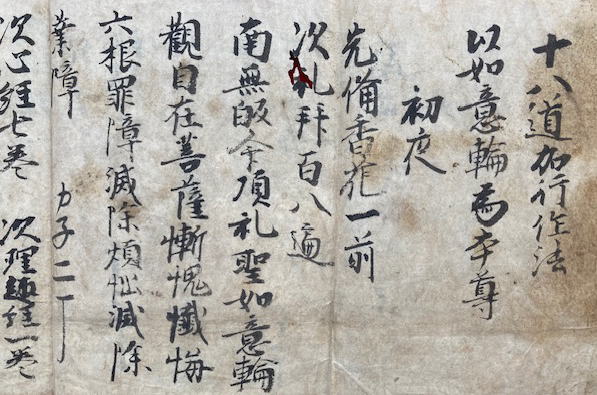 十八道加行作法
以如意輪為本尊
初夜
先俻香花一前
次礼拜百八遍
南無皈命頂礼聖如意輪
觀自在菩薩慚愧懺悔
六根罪障滅除煩悩滅除
業障 カ子二丁
次心経七巻 次理趣経一巻